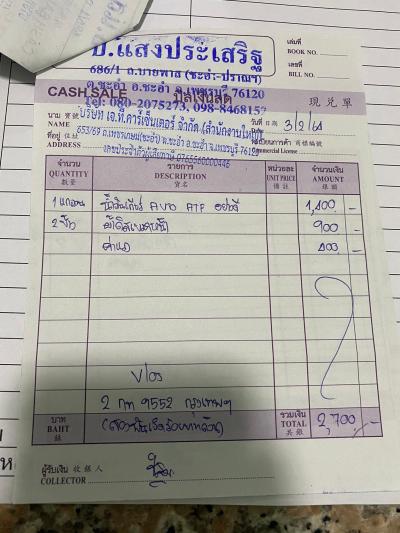 ป.แสงประเสริฐ
686/1 ถ.นายพาส (ชะอำ-ปราณฯ)
ต.ชะอำ อ.ชะอำ จ.เพชรบุรี 76120
Tel: 080-2075273, 098-8468157
เล่มที่
BOOK NO.
เลขที่
BILL NO.
CASH SALE บิลเงินสด 現兌單
นาม 寶號
NAME
บริษัท เจ.ที.คาร์เซ็นเตอร์ จำกัด (สำนักงานใหญ่)
วันที่ 日期
Date
3/2/64
ที่อยู่ 住址
ADDRESS
653/69 ถ.เพชรเกษม(ชะอำ) ต.ชะอำ อ.ชะอำ จ.เพชรบุรี 76120
เลขประจำตัวผู้เสียภาษี 0765560000446
ทะเบียนการค้า 商標編號
Commercial License
จำนวน รายการ หน่วยละ จำนวนเงิน
QUANTITY DESCRIPTION UNIT PRICE AMOUNT
數量 貨名 備註 銀額
1 แกลลอน AUTO ATF 1,400.-
2 900 -
ค่าแรง 400.-
V10S
2 กท 9552 กรุงเทพฯ
บาท
BAHT
銖
(สองพันเจ็ดร้อยบาทถ้วน)
รวมเงิน
TOTAL
共銀
2,700.-
ผู้รับเงิน 收銀人
COLLECTOR